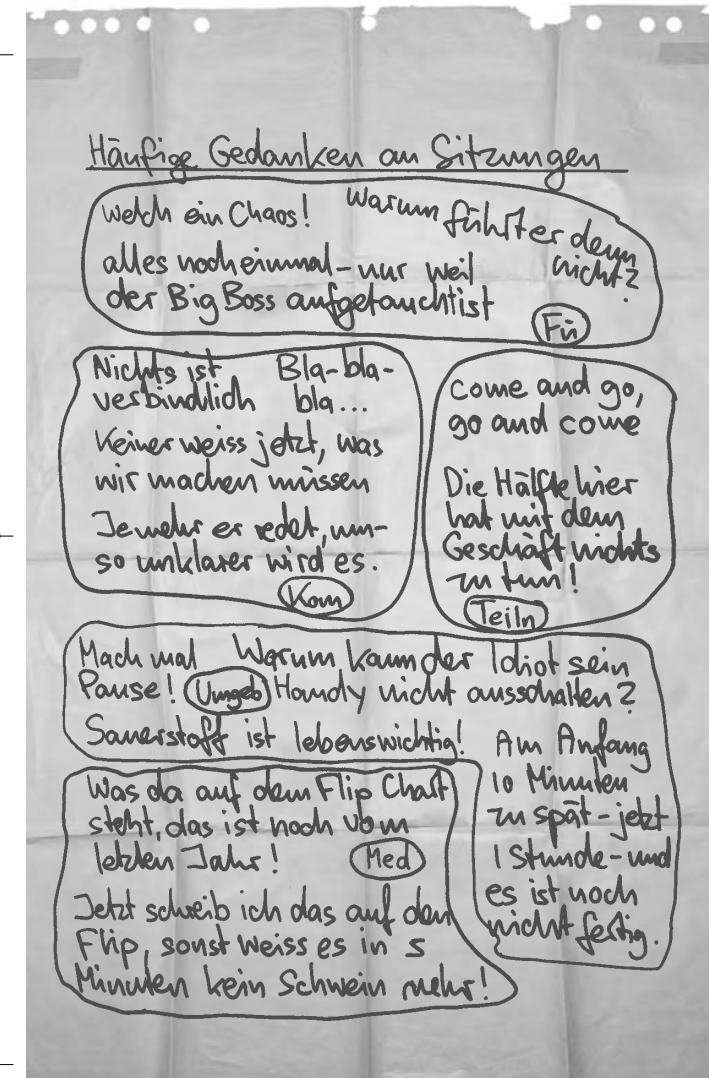 Häufige Gedanken an Sitzungen
Welch ein Chaos!
Warum führt er denn
nicht?
alles noch einmal – nur weil
der Big Boss aufgetaucht ist
Fü
Nichts ist
verbindlich
Bla-bla-
bla...
Keiner weiss jetzt, was
wir machen müssen
Je mehr er redet, um-
so unklarer wird es.
Kom
come and go,
go and come
Die Hälfte hier
hat mit dem
Geschäft nichts
zu tun!
Teiln
Mach mal
Pause!
Umgeb
Warum kann der Idiot sein
Handy nicht ausschalten?
Sauerstoff ist lebenswichtig!
Am Anfang
10 Minuten
zu spät – jetzt
1 Stunde – und
es ist noch
nicht fertig.
Was da auf dem Flip Chart
steht, das ist noch vom
letzten Jahr!
Med
Jetzt schreib ich das auf den
Flip, sonst weiss es in 5
Minuten kein Schwein mehr!